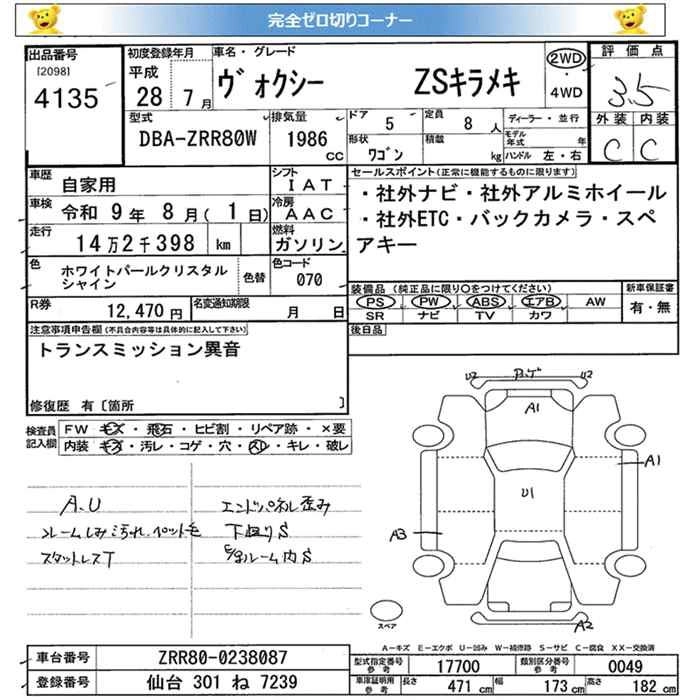 完全ゼロ切りコーナー
出品番号
[2098]
4135
初度登録年月
平成
28年7月
車名・グレード
ヴォクシー ZSキラメキ
2WD
・
4WD
評価点
3.5
外装 内装
C C
型式
DBA-ZRR80W
排気量
1986
cc
ドア
5
定員
8人
形状
ワゴン
積載
kg
ディーラー・並行
モデル年式 年
ハンドル 左・右
車歴
自家用
シフト
IAT
車検
令和 9年 8月( 1日)
冷房
AAC
走行
14万2千398 km
燃料
ガソリン
色
ホワイトパールクリスタル
シャイン
色替
色コード
070
R券
12,470円
名変通知期限
月 日
セールスポイント(正常に機能するものに限ります)
・社外ナビ・社外アルミホイール
・社外ETC・バックカメラ・スペ
アキー
装備品 (純正品に限り○をつけてください)
PS PW ABS エアB AW
SR ナビ TV カワ
新車保証書
有・無
後日品
注意事項申告欄(不具合内容等は具体的に記入して下さい)
トランスミッション異音
修復歴 有〔箇所 〕
検査員
記入欄
FW キズ・飛石・ヒビ割・リペア跡・×要
内装 キズ・汚レ・コゲ・穴・スレ・キレ・破レ
A.U
フレームしみ汚れ.ペット毛
スタットレスT
エンドパネル歪み
下廻りS
E/gルーム内S
U2
U2
A1
A1
U1
A3
A2
スペア
A-キズ E-エクボ U-凹み W-補修跡 S-サビ C-腐食 XX-交換済
車台番号
ZRR80-0238087
登録番号
仙台 301 ね 7239
型式指定番号
参考
17700
類別区分番号
参考
0049
車庫証明用
参考
長さ
471 cm
幅
173 cm
高さ
182 cm